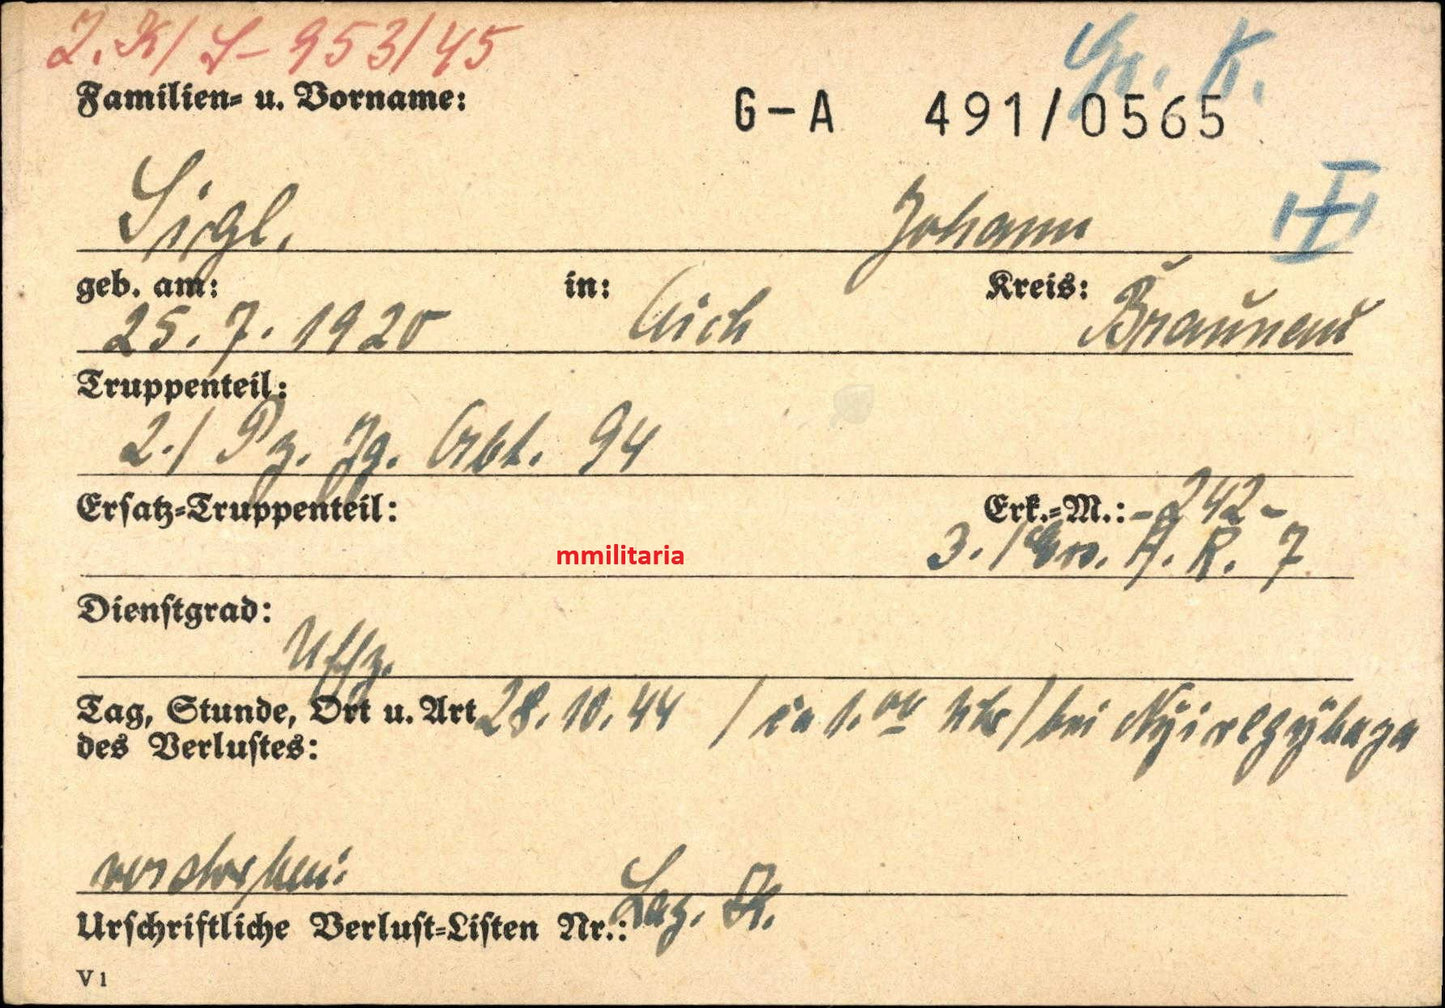 Z.K/S-953/45
Gr. K.
Familien- u. Vorname:
G-A 491/0565
Sigl, Johann
geb. am: in: Kreis:
25.7.1920 Aich Braunau
Truppenteil:
2./ Pz. Jg. Abt. 94
Ersatz-Truppenteil: Erk.-M.: -242-
mmilitaria
3./ A. R. 7
Dienstgrad:
Uffz.
Tag, Stunde, Ort u. Art 28.10.44 / Uhr / bei
des Verlustes:
verstorben.
Laz. K.
Urschriftliche Verlust-Listen Nr.:
V 1